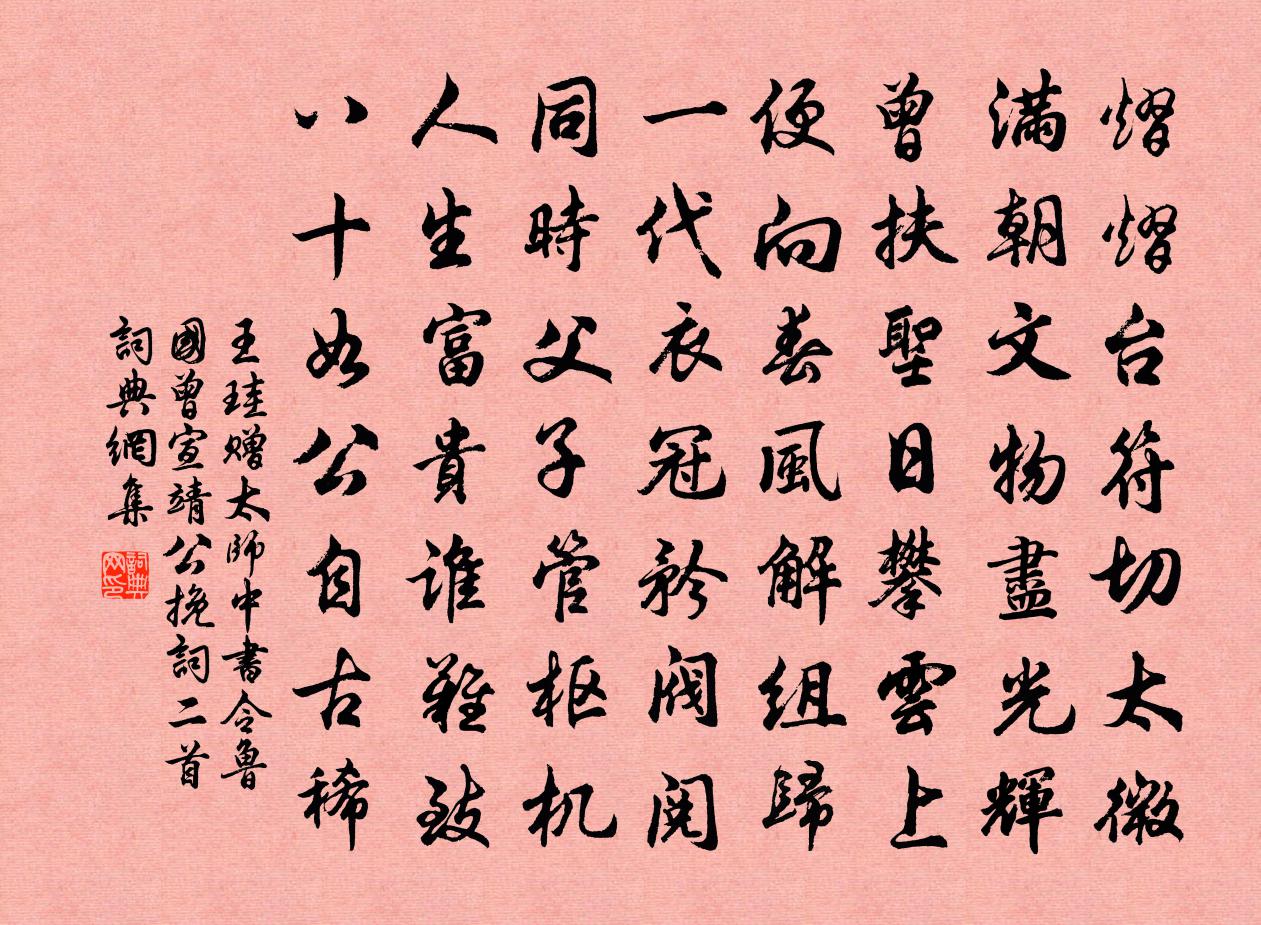 熠熠台符切太微
滿朝文物盡光輝
曾扶聖日攀雲上
便向春風解組歸
一代衣冠矜閥閱
同時父子管枢机
人生富貴誰難致
八十如公自古稀
王珪赠太師中書令魯
國曾宣靖公挽詞二首
詞典網集
詞典网印